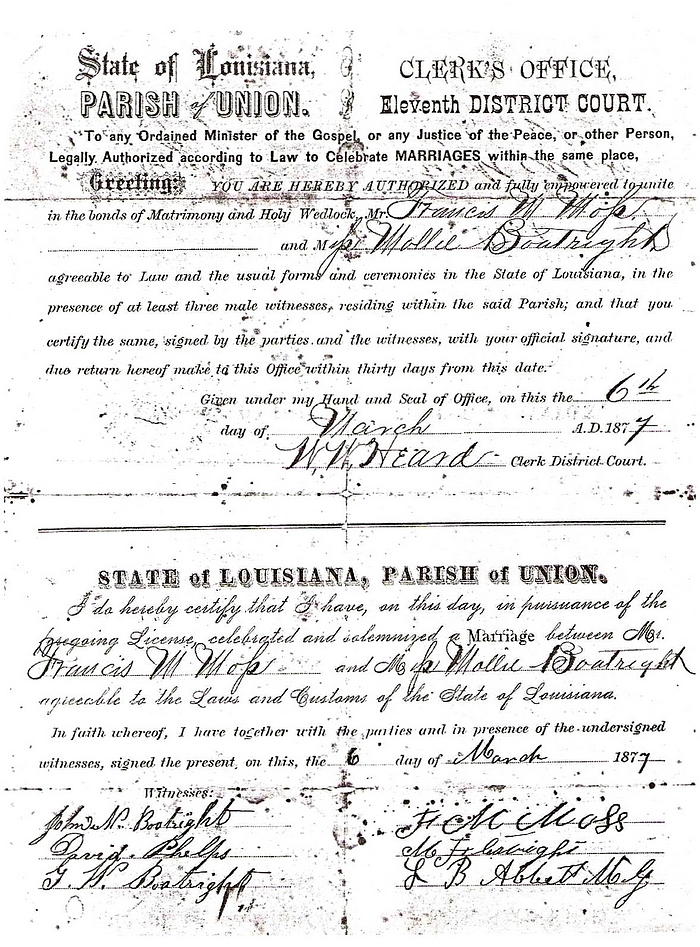 State of Louisiana,
PARISH of UNION.
CLERK'S OFFICE,
Eleventh DISTRICT COURT.
To any Ordained Minister of the Gospel, or any Justice of the Peace, or other Person,
Legally Authorized according to Law to Celebrate MARRIAGES within the same place,
Greeting: YOU ARE HEREBY AUTHORIZED and fully empowered to unite
in the bonds of Matrimony and Holy Wedlock, Mr. Francis M Moss
and Miss Mollie Boatright
agreeable to Law and the usual forms and ceremonies in the State of Louisiana, in the
presence of at least three male witnesses, residing within the said Parish; and that you
certify the same, signed by the parties and the witnesses, with your official signature, and
due return hereof make to this Office within thirty days from this date.
Given under my Hand and Seal of Office, on this the 6th
day of March A.D. 1877
W. W. Heard Clerk District Court.
STATE of LOUISIANA, PARISH of UNION.
I do hereby certify that I have, on this day, in pursuance of the
foregoing License, celebrated and solemnized a Marriage between Mr.
Francis M Moss and Miss Mollie Boatright
agreeable to the Laws and Customs of the State of Louisiana.
In faith whereof, I have together with the parties and in presence of the undersigned
witnesses, signed the present, on this, the 6 day of March 1877
Witnesses:
John N. Boatright
David Phelps
Boatright
F M Moss
M
B Abbett M.G